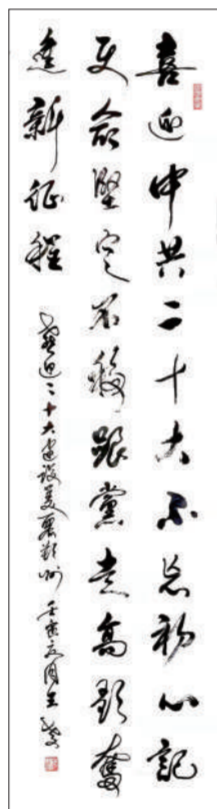 喜迎中共二十大不忘初心記
使命堅定不移跟黨走高歌奮
進新征程
喜迎二十大建设美麗 州 壬寅 月王